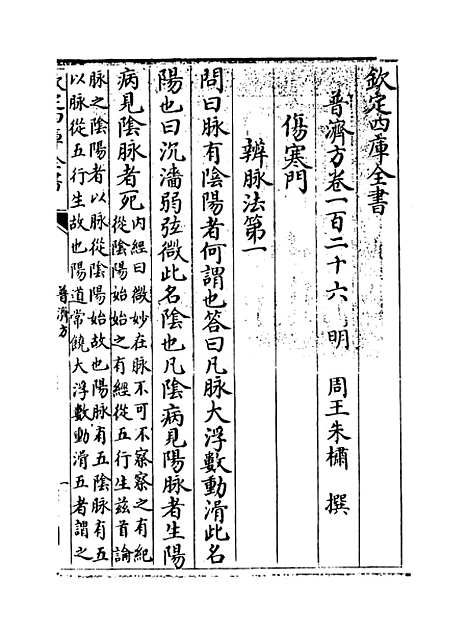 欽定四庫全書
普濟方卷一百二十六 明 周王朱橚 撰
傷寒門
辨脉法第一
問曰脉有陰陽者何謂也答曰凡脉大浮數動滑此名
陽也曰沉濇弱弦微此名陰也凡陰病見陽脉者生陽
病見陰脉者死
内經曰微妙在脉不可不察察之有紀
從陰陽始始之有經從五行生兹首論
脉之陰陽者以脉從陰陽始故也陽脉有五陰脉有五
以脉從五行生故也陽道常饒大浮數動滑五者謂之
欽定四庫全書
普濟方
一